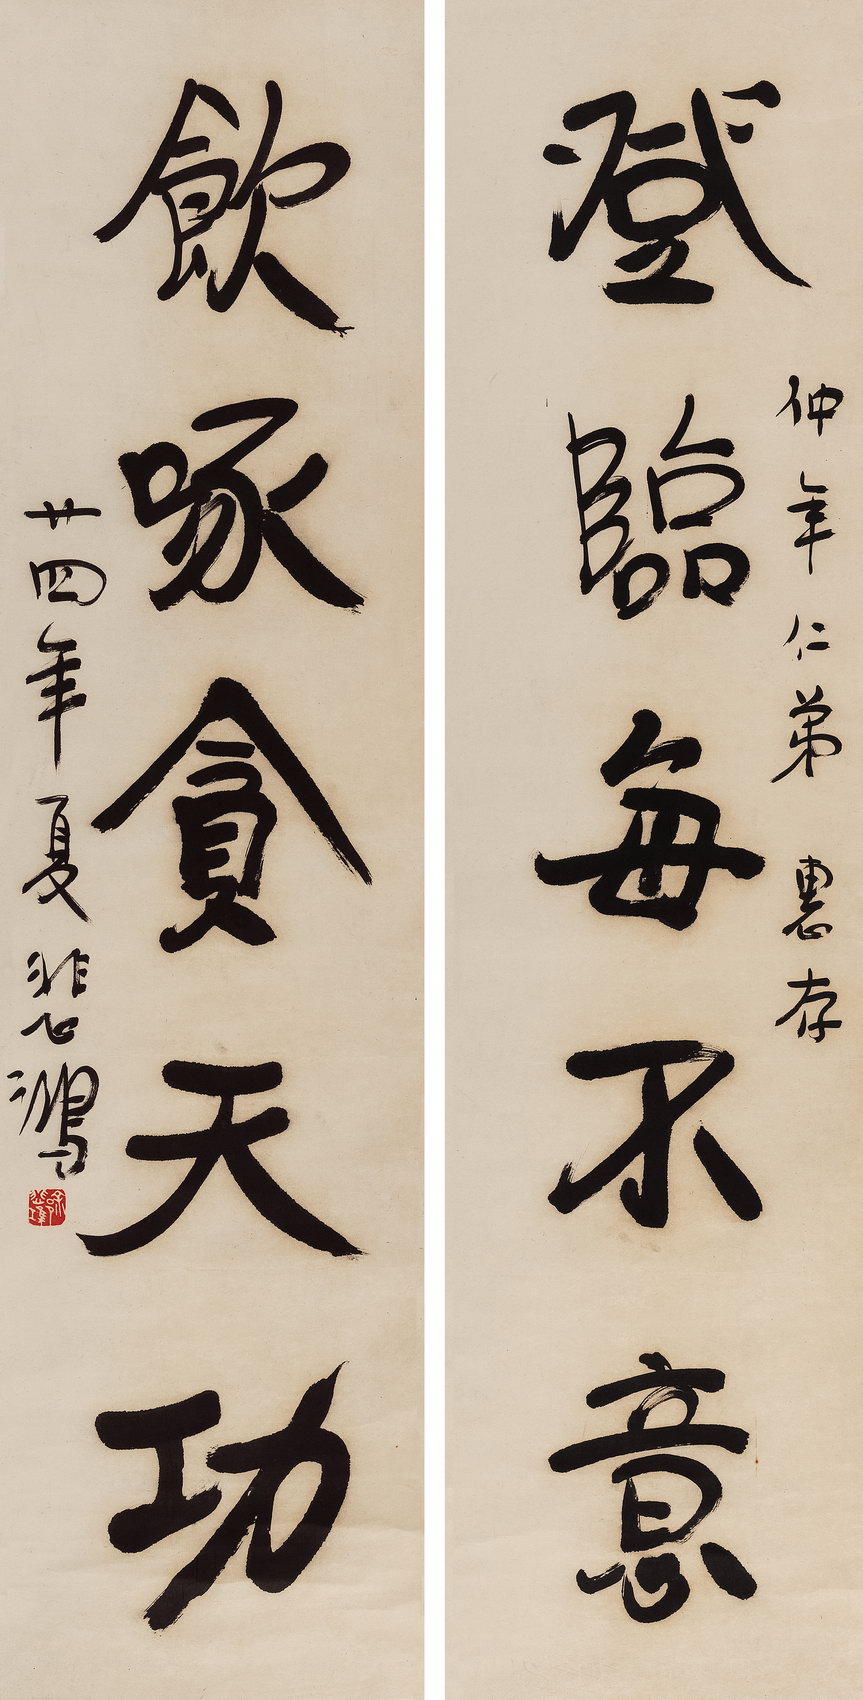 登臨每不意
仲年仁弟 惠存
飲啄貪天功
廿四年夏悲鴻